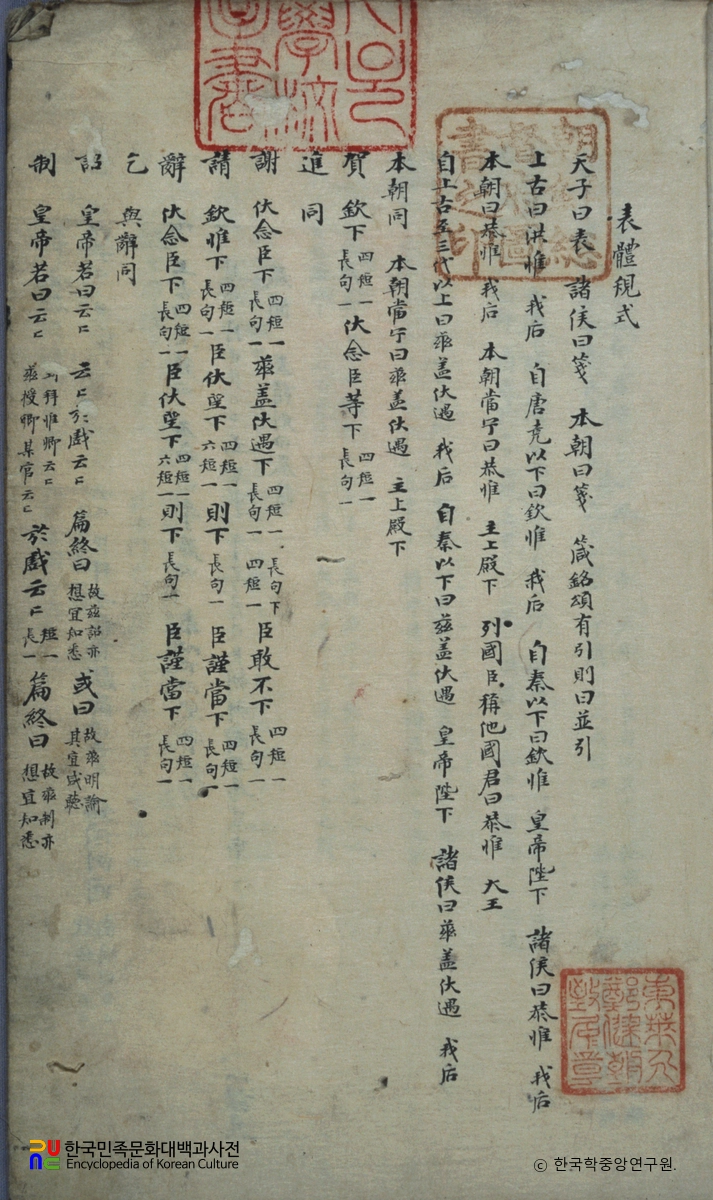 表體規式
天子曰表 諸侯曰箋 本朝曰箋 箴銘頌有引則曰並引
上古曰洪惟 我后 自唐堯以下曰欽惟 我后 自秦以下曰欽惟 皇帝陛下 諸侯曰恭惟 我后
本朝曰恭惟 我后 本朝當宁曰恭惟 主上殿下 列國臣稱他國君曰恭惟 大王
自上古至三代以上曰玆盖伏遇 我后 自秦以下曰玆盖伏遇 皇帝陛下 諸侯曰玆盖伏遇 我后
本朝同 本朝當宁曰玆盖伏遇 主上殿下
賀 欽下 四短一 長句一 伏念臣等下 四短一 長句一
進 同
謝 伏念臣下 四短一 長句一 玆盖伏遇下 四短一 長句一 長句下一 四短一 臣敢不下 四短一 長句一
請 欽惟下 四短一 長句一 臣伏望下 四短一 六短一 則下 長句一 臣謹當下 四短一 長句一
辭 伏念臣下 四短一 長句一 臣伏望下 四短一 六短一 則下 長句一 臣謹當下 四短一 長句一
乞 與辭同
詔 皇帝若曰云云 云云於戱云云 篇終曰 故玆詔亦 想宜知悉 或曰 故玆明諭 其宜或聽
制 皇帝若曰云云 拜惟卿云云 玆授卿某官云云 於戱云云 短一 長一 篇終曰 故玆制亦 想宜知悉
朝鮮總督府圖書之印
한국민족문화대백과사전
Encyclopedia of Korean Culture
© 한국학중앙연구원.